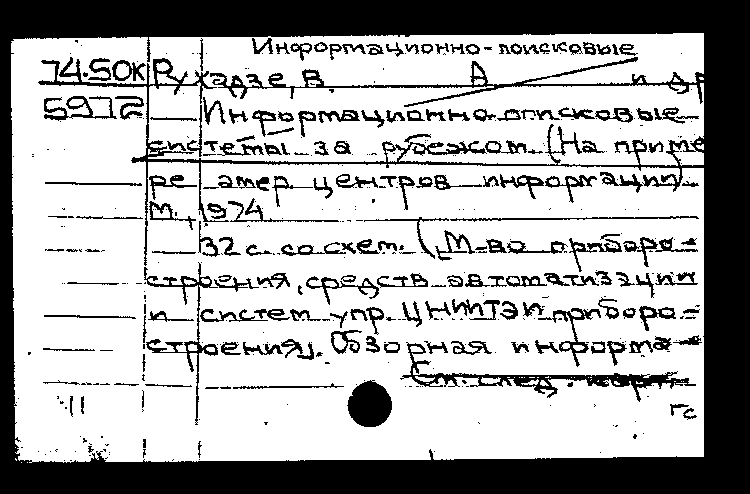 Информационно-поисковые
74-50К Рухадзе, В. А и др
5972 Информационно-поисковые
системы за рубежом. (На приме
ре амер. центров информации)
М., 1974
32 с. со схем. ([М-во приборо-
строения, средств автоматизации
и систем упр. ЦНИИТЭИ приборо-
строения]. Обзорная информа-
См. след. карт.
11
гс